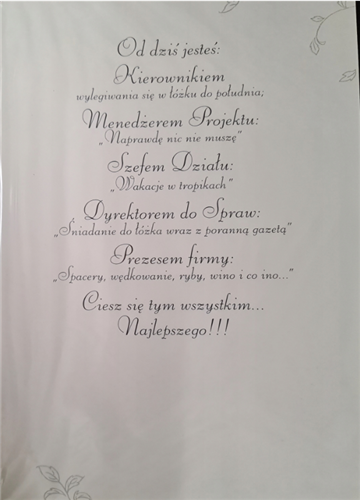 Od dziś jesteś:
Kierownikiem
wylegiwania się w łóżku do południa;
Menedżerem Projektu:
„Naprawdę nic nie muszę"
Szefem Działu:
„Wakacje w tropikach"
Dyrektorem do Spraw:
„Śniadanie do łóżka wraz z poranną gazetą"
Prezesem firmy:
„Spacery, wędkowanie, ryby, wino i co ino..."
Ciesz się tym wszystkim...
Najlepszego!!!